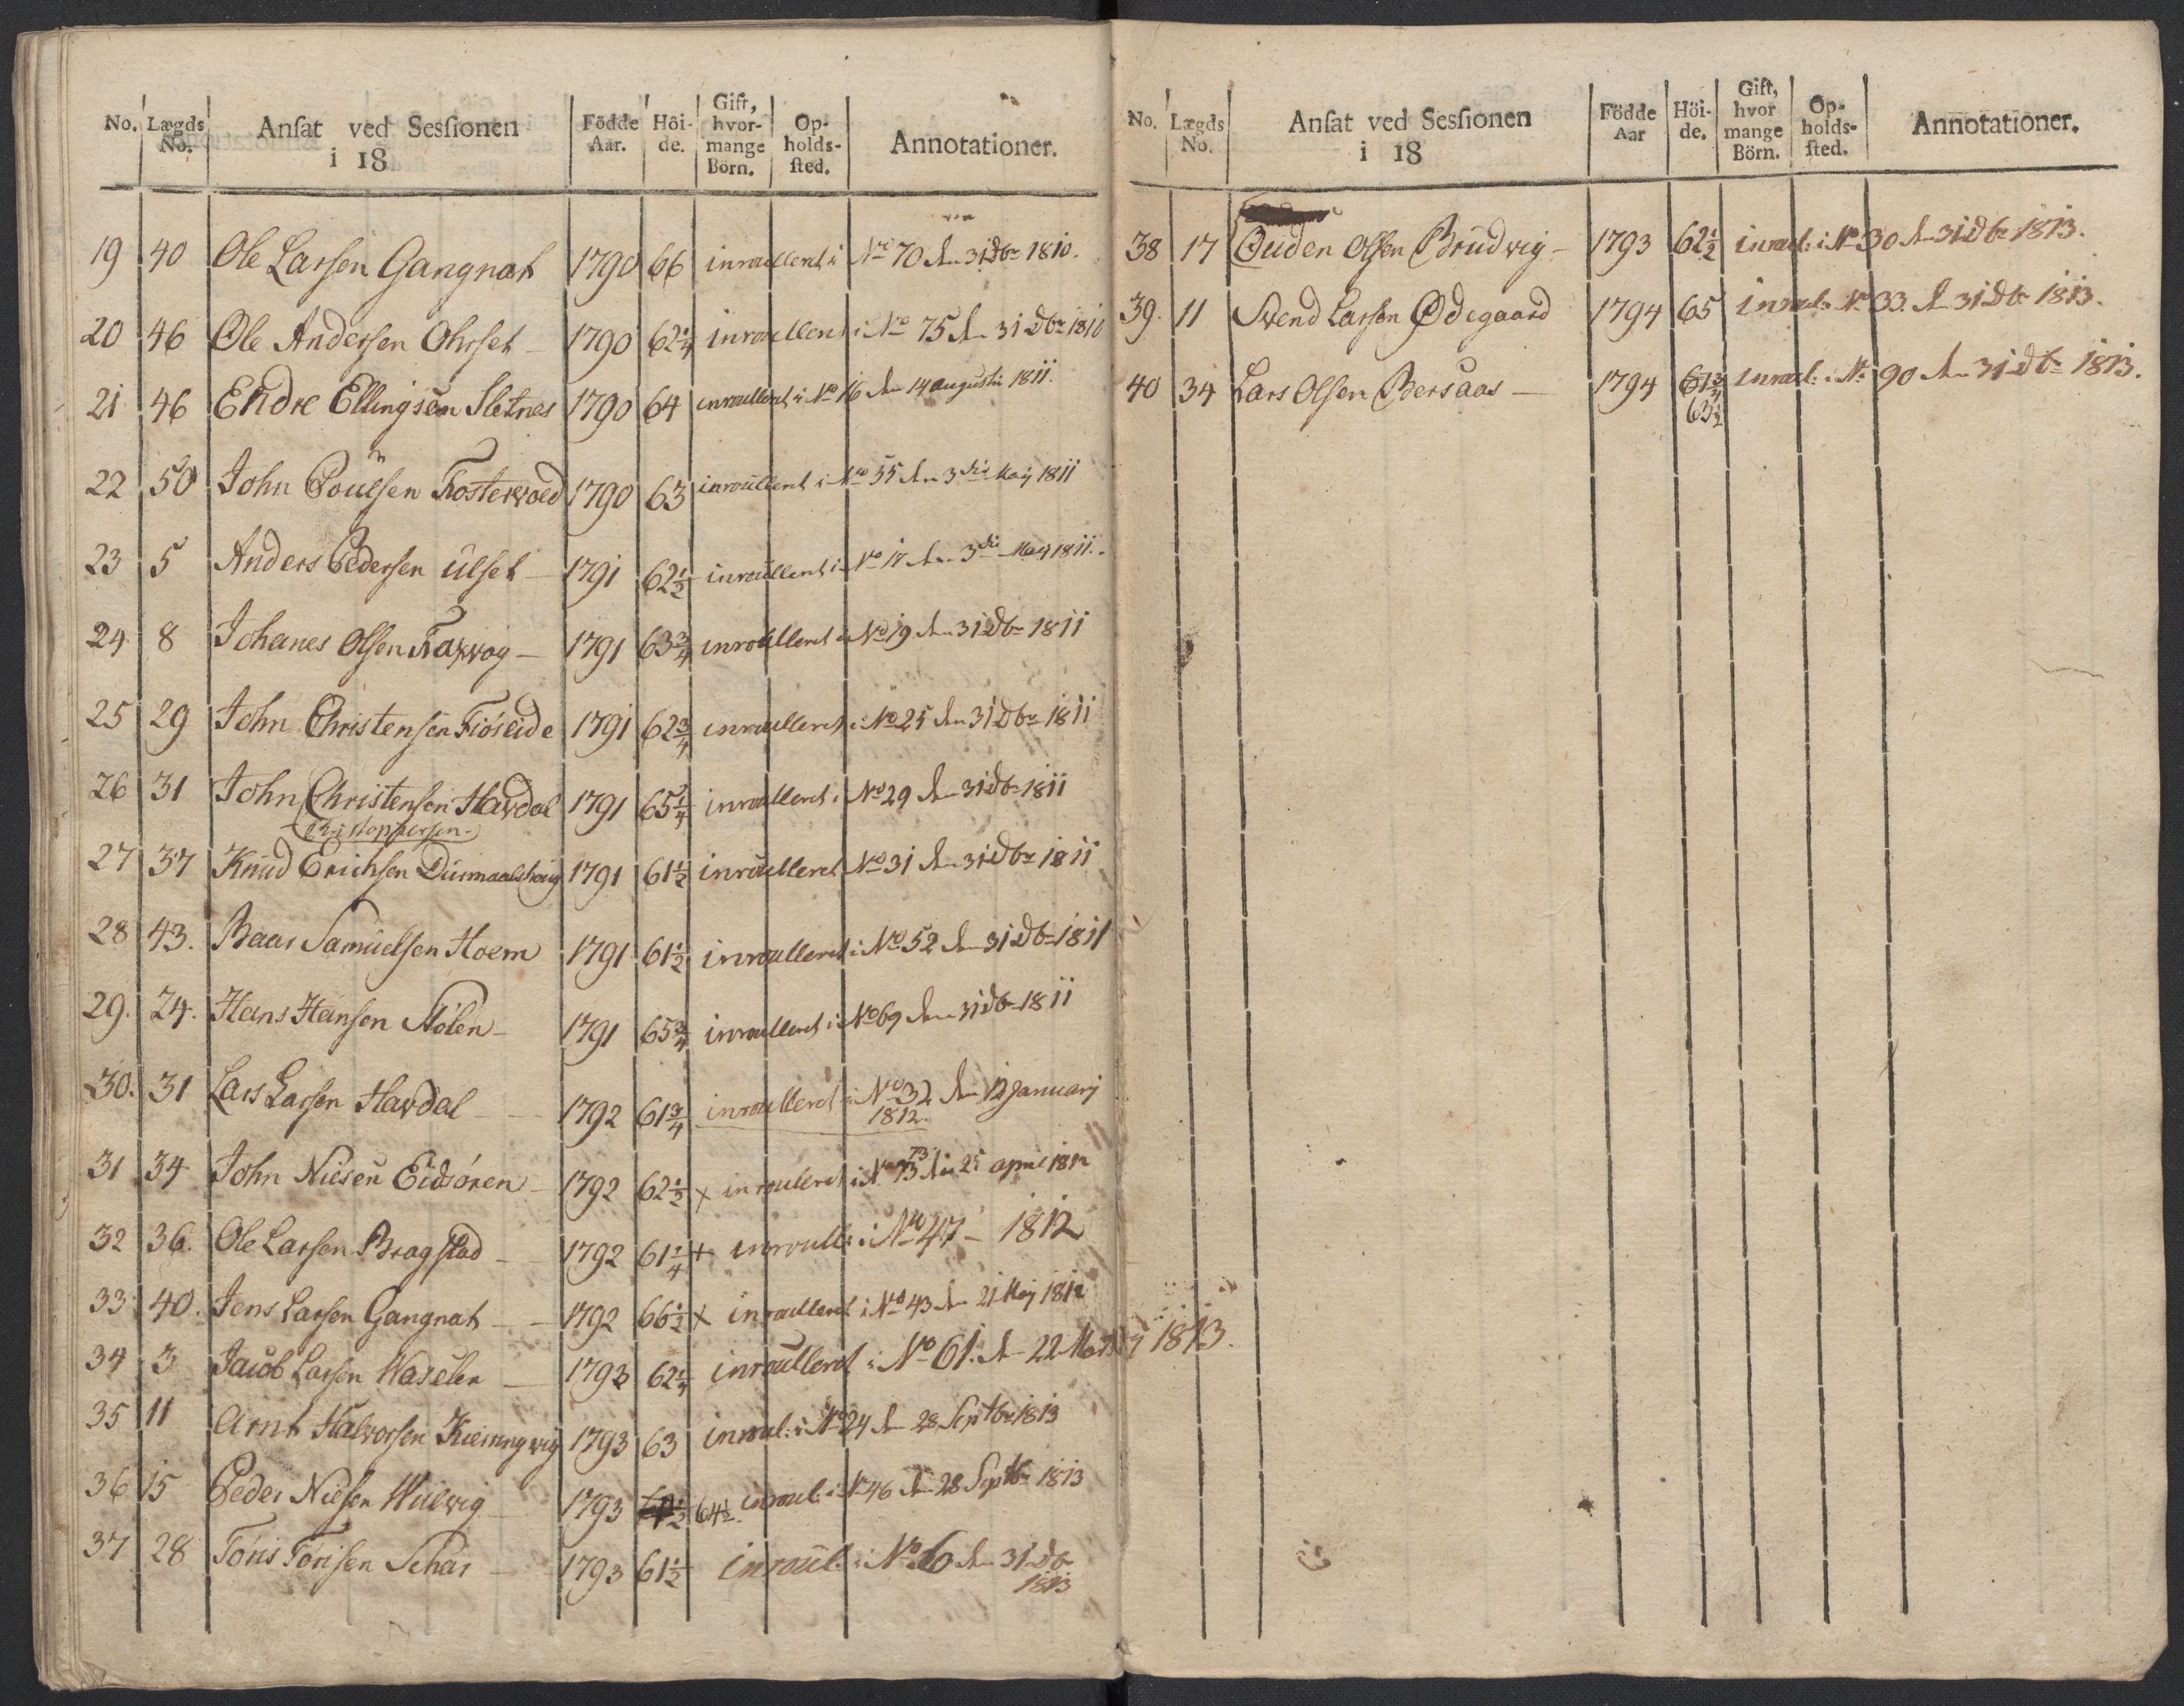 No. Lægds No. Ansat ved Sessionen i 18 Födde Aar. Höi-de. Gift, hvor-mange Börn. Op-holds-sted. Annotationer.
19 40 Ole Larsen Gangnat 1790 66 inroulleret i No 70 den 31 Dbr 1810.
20 46 Ole Andersen Ohrset 1790 62 1/4 inroulleret i No 75 den 31 Dbr 1810
21 46 Endre Ellingsen Sletnes 1790 64 inroulleret i No 16 den 14 augusti 1811.
22 50 John Poulsen Fostervold 1790 63 inroulleret i No 55 den 3die Maij 1811
23 5 Anders Pedersen Ulset 1791 62 1/2 inroulleret i No 17 den 3die Maij 1811.
24 8 Johanes Olsen Farvog 1791 63 3/4 inroulleret i No 19 den 31 Dbr 1811
25 29 John Christensen Fiöseide 1791 62 3/4 inroulleret i No 25 den 31 Dbr 1811
26 31 John Christensen Havdal 1791 65 1/4 inroulleret i No 29 den 31 Dbr 1811
Christophersen
27 37 Knud Erichsen Duurmaalshoug 1791 61 1/2 inroulleret No 31 den 31 Dbr 1811
28 43. Baar Samuelsen Hoem 1791 61 1/2 inroulleret i No 52 den 31 Dbr 1811
29. 24. Hans Hansen Stölen 1791 65 3/4 inroulleret i No 69 den 31 Dbr 1811
30. 31 Lars Larsen Havdal 1792 61 3/4 inroulleret i No 32 den 12 Januarj
1812.
31 34 John Nielsen Eidsören 1792 62 1/2 x inrouleret i No 73 den 25 april 1812
32 36. Ole Larsen Bragstad 1792 61 1/4 + inroull: i No 47 – 1812
33 40. Jens Larsen Gangnat 1792 66 1/2 x inroulleret i No 43 den 21 Maj 1812
34 3 Jacob Larsen 1793 62 1/4 inroulleret i No 61. d 22 Martij 1813.
35 11 Arnt Halvorsen 1793 63 inroul: i No 24 d 28 Septbr 1813
36 15 Peder Nielsen Hulvig 1793 64 1/2. inroul: i No 46 den 28 Septbr 1813
37 28 Töris Törisen Schar 1793 61 1/2 inroul: i No 36 den 31 Dbr
1813
No. Lægds No. Ansat ved Sessionen i 18 Födde Aar Höi-de. Gift, hvor mange Börn. Op-holds-sted. Annotationer.
38 17 Ouden Olsen Brudvig 1793 62 1/2 inroul: i No 30 d 31 Dbr 1813.
39. 11 Svend Larsen Ödegaard 1794 65 inroul: No 33. d 31 Dbr 1813.
40 34 Lars Olsen Bersaas 1794 61 3/4 inroul: i No 90 den 31 Dbr 1813.
63 1/2